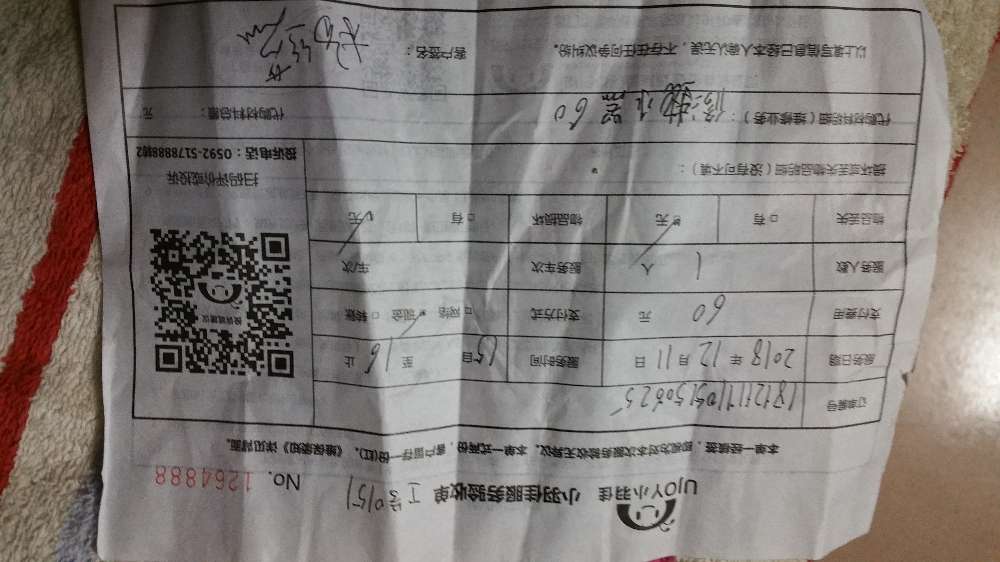 UJOY小羽佳 小羽佳服务验收单 工号0151 No. 1264888
本单一经填签，即视为对本次服务验收无异议。本单一式两份，客户留存一份(红)，《维保须知》详见背面。
订单编号
服务日期 2018 年 12 月 11 日 服务时间 15 自 至 16 止
支付费用 60 元 支付方式 □ 网络 现金 □ 转账
服务人数 1 人 服务车次 车次
物品丢失 □ 有 无 物品损坏 □ 有 无
损坏或丢失物品明细（没有可不填）：
投诉或建议
扫码评价或投诉
投诉电话：0592-5178888转2
代购材料明细（维修业务）：修热水器 60 代购材料总额： 元
以上填写信息已经本人确认无误，不存在任何争议纠纷。 客户签名：